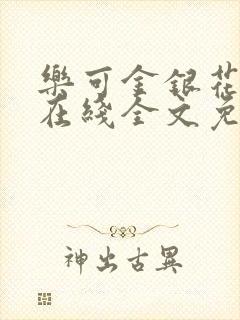 樂可金銀花
在綫全文免
神出古異